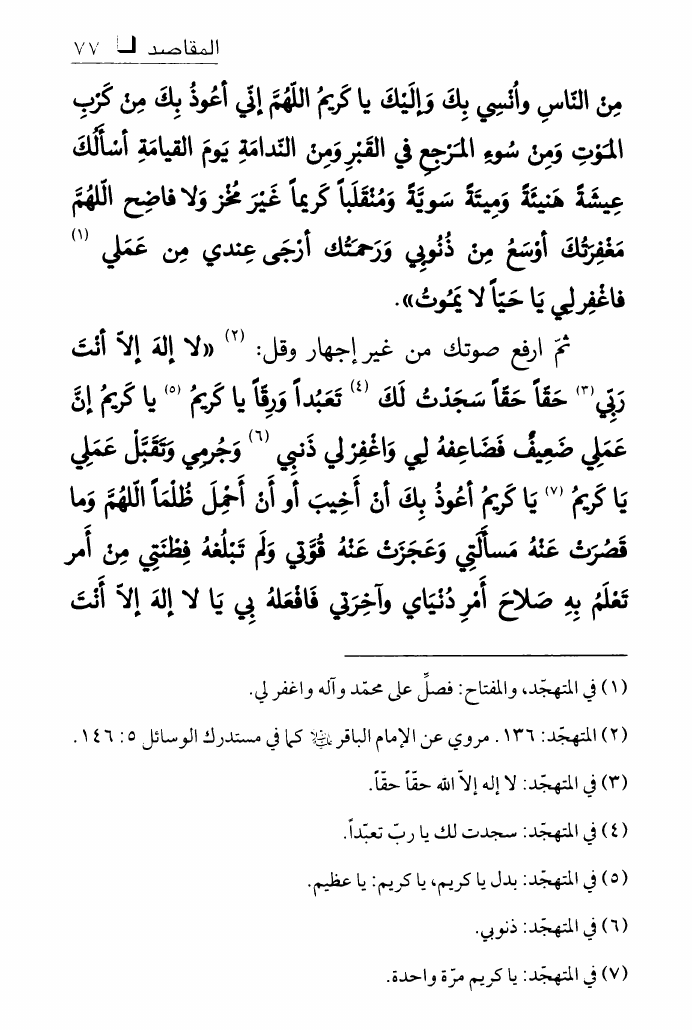 المقاصد ❏ ٧٧
مِنَ النّاسِ واُنْسِي بِكَ وَإلَيْكَ يا كَريمُ اللّهُمَّ إنّي أعُوذُ بِكَ مِنْ كَرْبِ
المَوْتِ وَمِنْ سُوءِ المَرْجعِ في القَبْرِ وَمِنَ النّدامَةِ يَومَ القيامَةِ أسْألُكَ
عِيشَةً هَنيئَةً وَمِيتَةً سَويَّةً وَمُنْقَلَباً كَريماً غَيْرَ مُخْزٍ وَلا فاضِح اللّهُمَّ
مَغْفِرَتُكَ أوْسَعُ مِنْ ذُنُوبِي وَرَحمَتُك أرْجَى عِندي مِن عَمَلي (١)
فاغْفِر لي يَا حَيّاً لا يَمُوتُ».
ثمّ ارفع صوتك من غير إجهار وقل: (٢) «لا إلهَ إلاّ أنْتَ
رَبِّي(٣) حَقّاً حَقّاً سَجَدْتُ لَكَ (٤) تَعَبُداً وَرِقّاً يا كَريمُ (٥) يا كَريمُ إنَّ
عَمَلي ضَعِيفٌ فَضَاعِفهُ لِي وَاغْفِرْ لي ذَنبِي (٦) وَجُرمِي وَتَقَبَّلْ عَمَلي
يَا كَريمُ (٧) يَا كَريمُ أعُوذُ بِكَ أنْ أَخِيبَ أو أَنْ أَحْمِلَ ظُلْمَاً اللّهُمَّ وَما
قَصُرَتْ عَنْهُ مَسألَتِي وَعَجَزَتْ عَنْهُ قُوَّتي وَلَم تَبْلُغهُ فِطْنَتِي مِنْ أَمر
تَعْلَمُ بِهِ صَلاحَ أَمْرِ دُنْيَاي وآخِرَتي فَافْعَلهُ بِي يَا لا إلهَ إلاّ أَنْتَ
(١) في المتهجّد، والمفتاح: فصلِّ على محمّد وآله واغفر لي.
(٢) المتهجّد: ١٣٦. مروي عن الإمام الباقر عليه السلام كما في مستدرك الوسائل ٥: ١٤٦.
(٣) في المتهجّد: لا إله إلاّ الله حقّاً حقّاً.
(٤) في المتهجّد: سجدت لك يا ربّ تعبّداً.
(٥) في المتهجّد: بدل يا كريم، يا كريم: يا عظيم.
(٦) في المتهجّد: ذنوبي.
(٧) في المتهجّد: يا كريم مرّة واحدة.